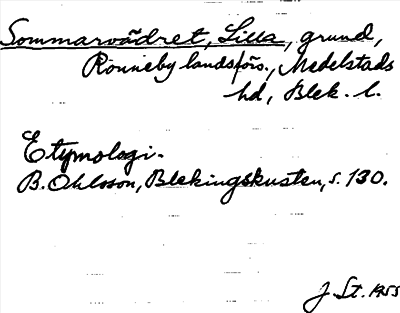 Sommarvädret, Lilla, grund,
Ronneby landsförs., Medelstads
hd, Blek. l.
Etymologi.
B. Ohlsson, Blekingskusten, s. 130.
J St. 1955